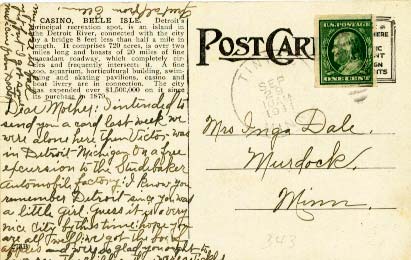 CASINO, BELLE ISLE. Detroit's
principal recreation spot, is an island in
the Detroit River, connected with the city
by a bridge 8 feet less than half a mile in
length. It comprises 729 acres, is over two
miles long and boasts of 20 miles of fine
macadam roadway, which completely
circles and frequently intersects it. A fine
zoo, aquarium, horticultural building, swim-
ming and skating pavilions, casino and
boat livery are in connection. The city
has expended over $1,500,000 on it since
its purchase in 1879.
Dear Mother: I intended to
send you a card last week we
were alone here then Victor was
in Detroit-Michigan on a free
excursion to the Studebaker
Automobile factory. I know you
remember Detroit since you was
a little girl. Guess it is a very
nice City by this time. hope you
are all well. we got the box of
apples and were so glad you ought to
POST CARD
U.S. POSTAGE
ONE CENT
SEP
Mrs Inga Dale.
Murdock.
Minn.
343